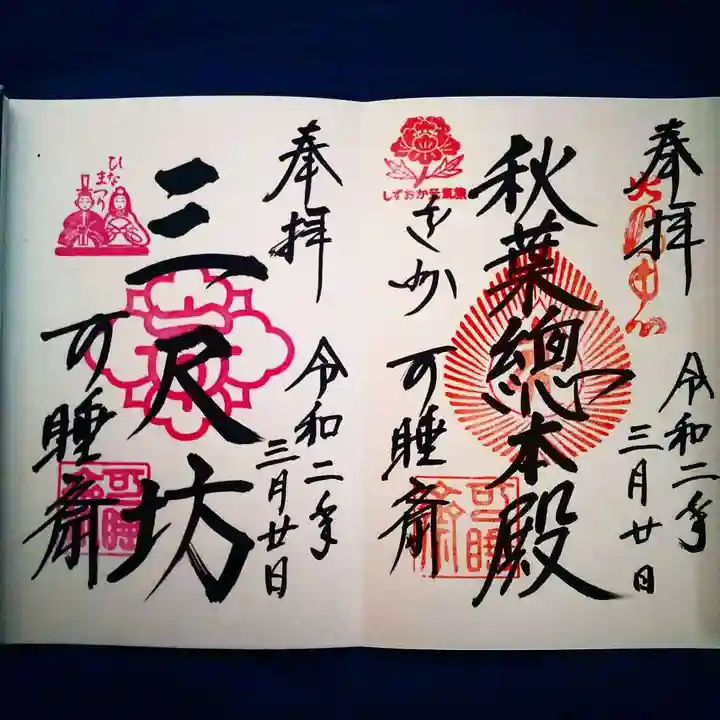 奉拝
秋葉總本殿
令和二年
三月廿日
しずおか元気旅
可睡斎
可睡斎
奉拝
三尺坊
令和二年
三月廿日
ひな
まつり
可睡斎
可睡